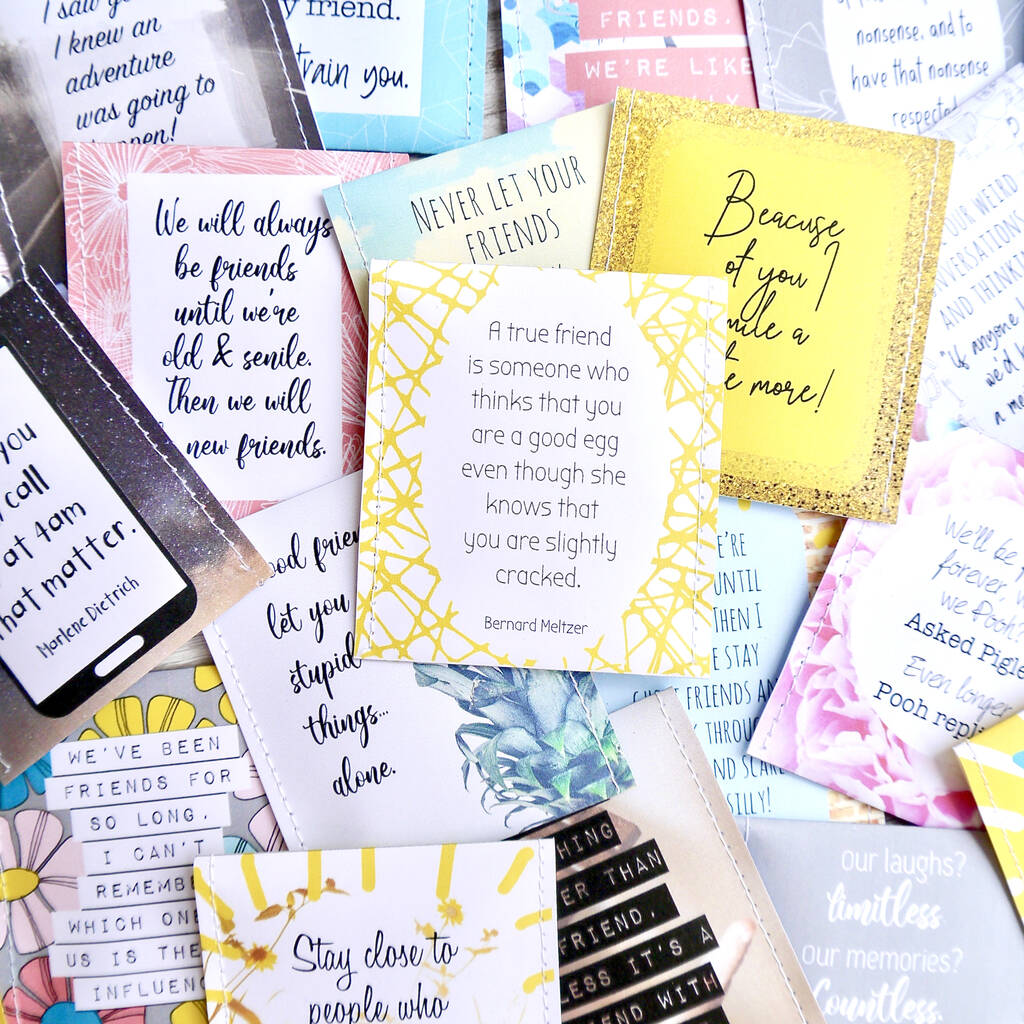 I saw
I knew an
adventure
was going to
y friend.
train you.
FRIENDS.
WE'RE LIKE
nonsense, and to
have that nonsense
respected
We will always
be friends
until we're
old & senile.
Then we will
new friends.
NEVER LET YOUR
FRIENDS
Beacuse
of you I
a
more!
OUR WEIRD
AND THINKING
"If anyone
we'd
a
you
call
at 4am
that matter.
Marlene Dietrich
A true friend
is someone who
thinks that you
are a good egg
even though she
knows that
you are slightly
cracked.
Bernard Meltzer
let you
stupid
things...
alone.
UNTIL
THEN I
STAY
FRIENDS
THROUGH
SILLY!
We'll be
forever,
we Pooh?
Asked Piglet
Even longer
Pooh
WE'VE BEEN
FRIENDS FOR
SO LONG,
I CAN'T
REMEMBE
WHICH ONE
US IS THE
INFLUENC
Stay close to
people who
HING
ER THAN
FRIEND,
LESS IT'S A
END WITH
our laughs?
limitless
our memories?
Countless.